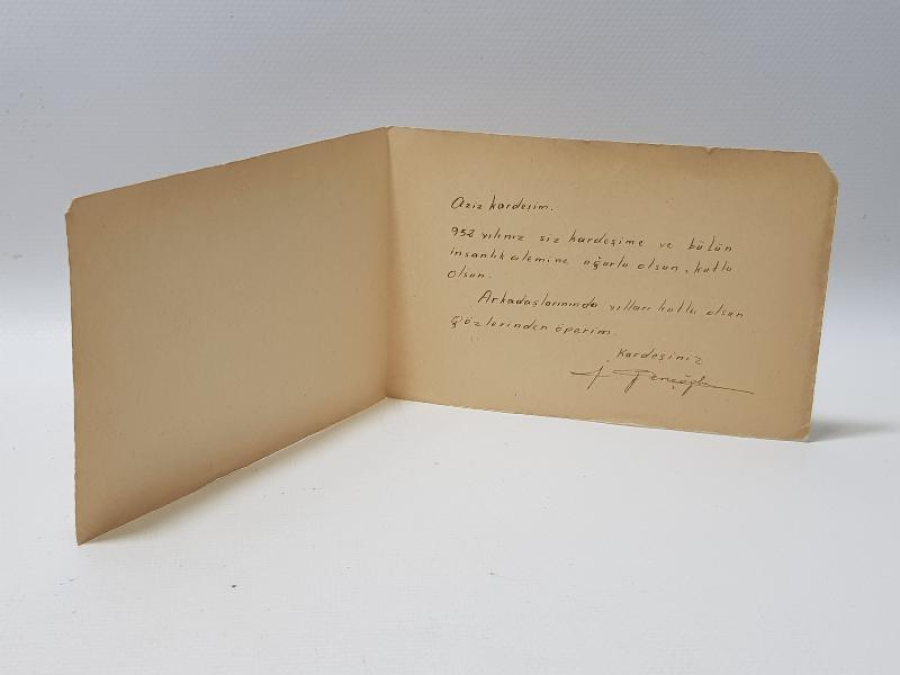 Aziz kardeşim.
952 yılınız siz kardeşime ve bütün
insanlık alemine uğurlu olsun, kutlu
olsun.
Arkadaşlarınında yılları kutlu olsun
Gözlerinden öperim.
Kardeşiniz